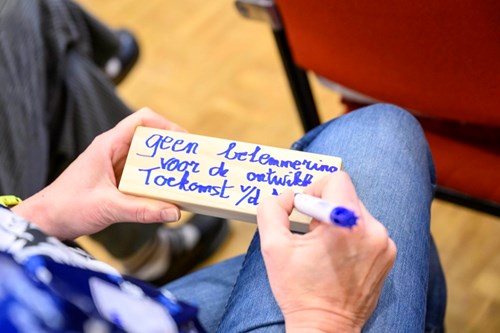 geen belemmering
voor de ontwikk
Toekomst v/d